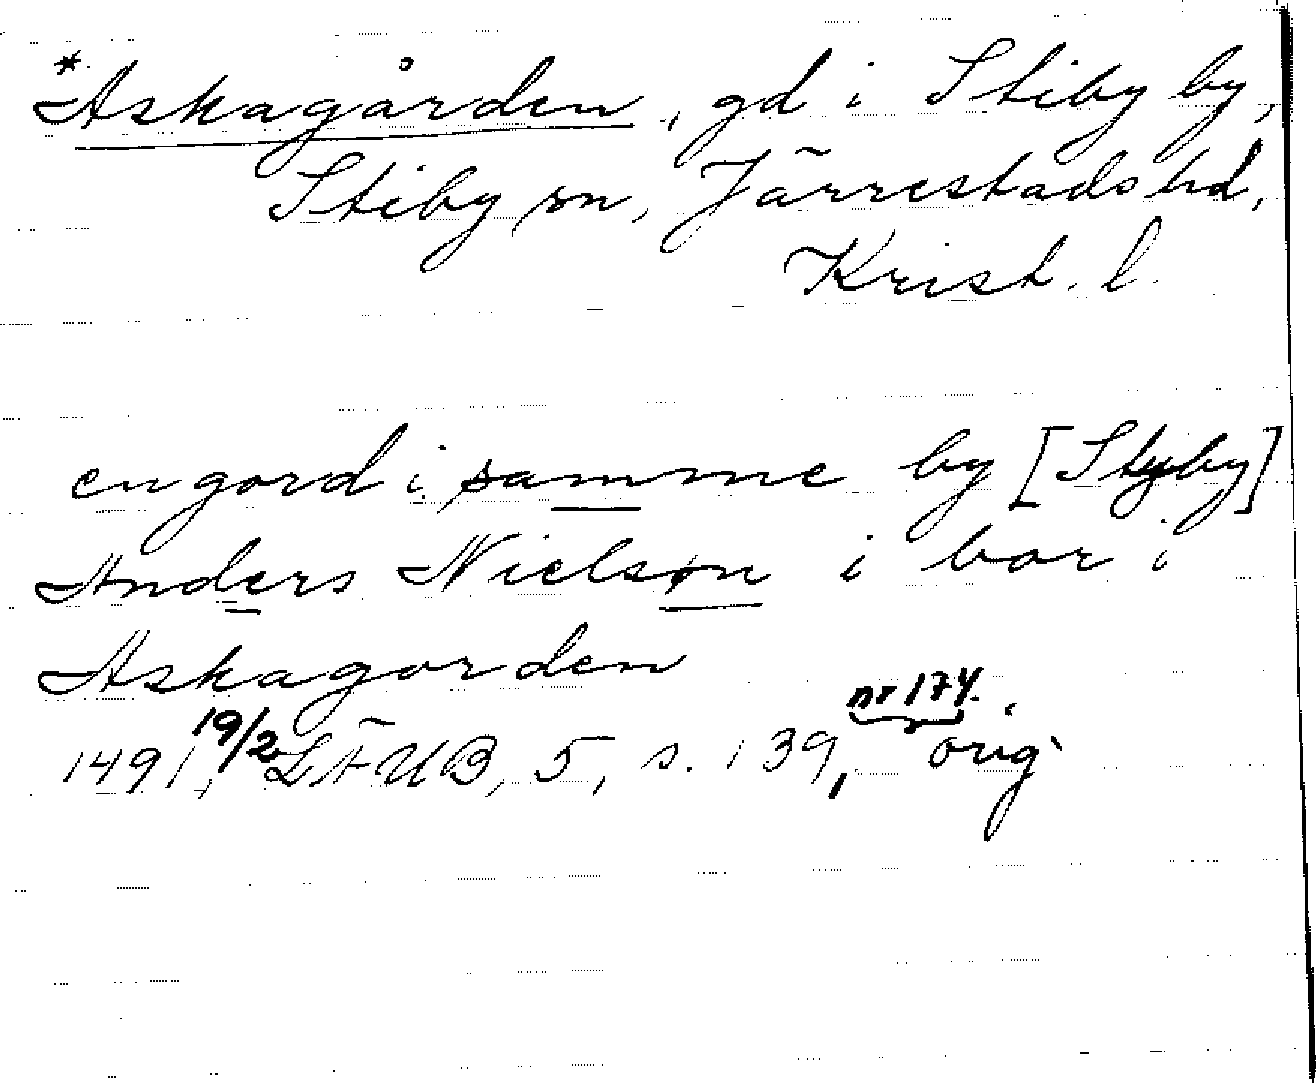 *Askagården, gd i Stiby by,
Stiby sn, Järrestads hd,
Krist. l.
en gord i samme by [Styby]
Anders Nielsøn i bor i
Askagorden
1491, 19/2 LÄUB, 5, s. 139, nr 174. orig.